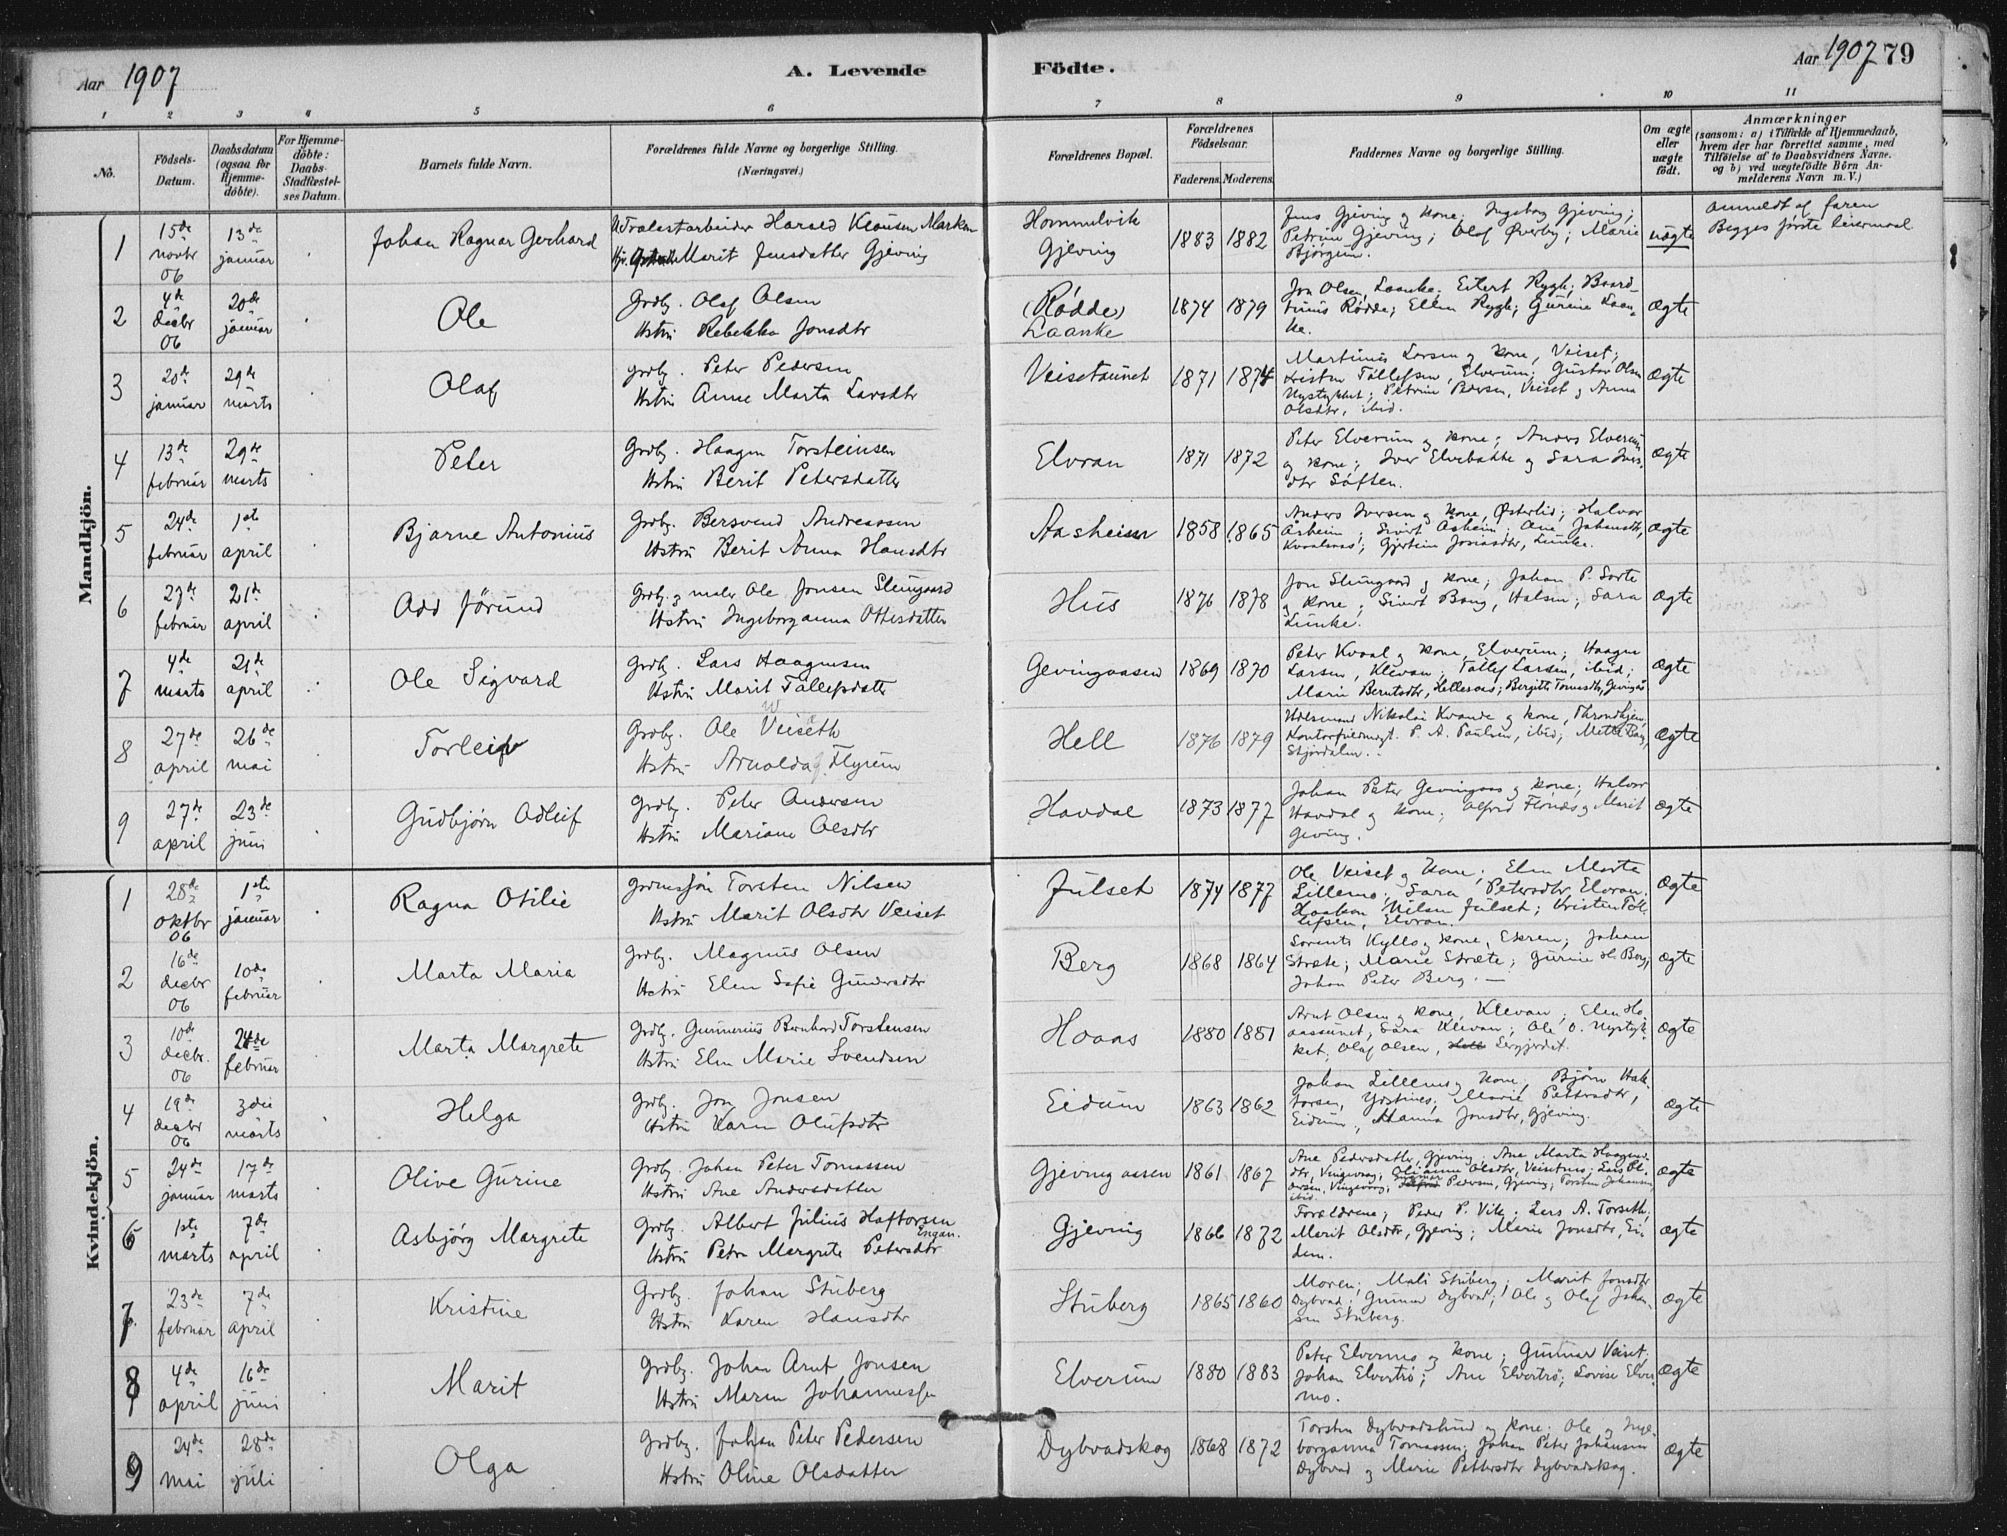 Aar 1907
A. Levende
Födte.
Aar 1907 79
1 2 3 4 5 6 7 8 9 10 11
No.
Födsels-
Datum.
Daabsdatum
(ogsaa for
Hjemme-
döbte).
For Hjemme-
döbte:
Daabs-
Stadfæstel-
ses Datum.
Barnets fulde Navn.
Forældrenes fulde Navne og borgerlige Stilling.
(Næringsvei.)
Forældrenes Bopæl.
Forældrenes
Födselsaar.
Faderens. Moderens.
Faddernes Navne og borgerlige Stilling.
Om ægte
eller
uægte
födt.
Anmærkninger
(saasom: a) i Tilfælde af Hjemmedaab,
hvem der har forrettet samme, med
Tilföielse af to Daabsvidners Navne.
og b) ved uægtefödte Börn An-
melderens Navn m. V.)
Mandkjön.
1 15de novbr 06 13de januar Johan Ragnar Gerhard
Harald Klausen Marken
Marit Jensdatter Gjeving
Hommelvik
Gjeving
1883 1882
Jens Gjeving og kone; Ingeborg Gjeving;
Petrine Gjeving; Olaf Øverby; Marie
Bjørgum.
uægte
anmeldt af faren
Begges første leiermaal
2 4de decbr 06 20de januar Ole
Grdbr. Olaf Olsen
Hstru Rebekka Jonsdtr
(Rødde)
Laanke
1874 1879
Jon Olsen, Laanke; Eilert Rygh; Baard
Rødde; Ellen Rygh; Gurine Laan-
ke.
ægte
3 20de januar 29de marts Olaf
grdbr. Peter Pedersen
Hstru Anne Marta Larsdtr
Veisetaunet
1871 1874
Martinus Larsen og kone, Veiset;
Kristen Tollefsen, Elverum; Gustav Olsen
Nystykket; Petrine Pedersen, Veiset og Anna
Olsdtr, ibid.
ægte
4 13de februar 29de marts Peter
Grdbr. Haagen Torsteinsen
Hstru Berit Petersdatter
Elvran
1871 1872
Peter Elverum og kone; Anders Elverum
og kone; Iver Elvebakke og Sara Ivers-
dtr Søften.
ægte
5 24de februar 1ste april Bjarne Antonius
Grdbr. Bersvend Andreassen
Hstru Berit Anna Hansdtr
Aasheim
1858 1865
Anders Iversen og kone, Østerlid; Halvor
Åsheim; Sivert Åsheim; Ane Johansdtr,
ægte
6 27de februar 21de april Odd Jørund
Grdbr. og maler Ole Jonsen Slungaard
Hstru Ingeborganna Ottesdatter
Hus
1876 1878
Jon Slungaard og kone; Johan P. Sorte
og kone; Sivert Bang, Halsen; Sara
ægte
7 4de marts 21de april Ole Sigvard
Grdbr. Lars Haagensen
Hstru Marit Tollefsdatter
Gevingaasen
1869 1870
Peter Kvaal og kone, Elverum; Haagen
Larsen, Klevan; Tollef Larsen, ibid;
Marie Berntsdtr, Hellesaas; Bergitte Tomasdtr, Gevingås
ægte
8 27de april 26de mai Torleif
Grdbr. Ole Veiseth
Hstru Arnolda Flyum
Hell
1876 1879
Nikolai Kvande og kone, Throndhjem;
P. A. Paulsen, ibid; Mette Bang,
Stjørdalen.
ægte
9 27de april 23de juni Gudbjørn Adleif
Grdbr. Peter Andersen
Hstru Mariane Olsdtr
Havdal
1873 1877
Johan Peter Gevingaas og kone; Halvor
Havdal og kone; Alfred Flornæs og Marit
Geving.
ægte
Kvindekjön.
1 28de oktbr 06 1ste januar Ragna Otilie
Torsten Nilsen
Hstru Marit Olsdtr Veiset
Julset
1874 1877
Ole Veiset og kone; Elen Marta
Lillemo; Sara Petersdtr Elvran.
Haakon Nilsen Julset; Kristen Tol-
lefsen, Elvran.
ægte
2 16de decbr 06 10de februar Marta Maria
grdbr. Magnus Olsen
Hstru Elen Sofie Gundersdtr
Berg
1868 1864
Sorents Kyllo og kone, Ekren; Johan
Stræte; Marie Stræte; Gurine H. Berg,
Johan Peter Berg. —
ægte
3 10de decbr. 06 24de februar Marta Margrete
Grdbr. Gunnerius Bernhard Torstensen
Hstru Elen Marie Svendsen
Hoaas
1880 1881
Arnt Olsen og kone, Klevan; Elen Ho-
aassunet; Sara Klevan; Ole O. Nystyk-
ket; Olaf Olsen,
ægte
4 19de decbr 06 3die marts Helga
Grdbr. Jon Jonsen
Hstru Karen Olufsdtr
Eidum
1863 1862
Johan Lillemo og kone, Bjørn Hal-
vorsen, Ystines; Marie Pettersdtr,
Eidum; Hanna Jonsdtr, Gjeving.
ægte
5 24de januar 17de marts Olive Gurine
Grdbr. Johan Peter Tomassen
Hstru Ane Andersdatter
Gjevingaasen
1861 1867
Ane Pedersdatter, Gjeving; Ane Marta Haagens-
dtr, Olianna Olsdtr, Veisetmo;
Pedersen, Gjeving; Torsten Johansen,
ibid
ægte
6 1ste marts 7de april Asbjørg Margrete
Grdbr. Albert Julius Haftorsen
Engan.
Hstru Petra Margrete Petersdtr
Gjeving
1866 1872
Forældrene; Peder P. Vik; Lars A. Torseth;
Marit Olsdtr, Gjeving; Marie Jonsdtr, Ei-
dum.
ægte
7 23de februar 7de april Kristine
Grdbr. Johan Stuberg
Hstru Karen Hansdtr
Stuberg
1865 1860
Moren; Mali Stuberg; Marit Jonsdtr
Dybvad; Gunnar Dybvad; Ole og Olaf Johan-
sen Stuberg.
ægte
8 4de april 16de juni Marit
Grdbr. Johan Arnt Jonsen
Hstru Maren Johannesen
Elverum
1880 1883
Peter Elvermo og kone; Gunnar Veiset;
Johan Elvertrø; Ane Elvertrø; Lovise Elver-
mo.
ægte
9 24de mai 28de juli Olga
Grdbr. Johan Peter Pedersen
Hstru Oline Olsdatter
Dybvadskog
1868 1872
Torsten Dybvadslund og kone; Ole og Inge-
borganna Tomassen; Johan Peter Johansen
Dybvad og Marie Pettersdtr Dybvadskog.
ægte